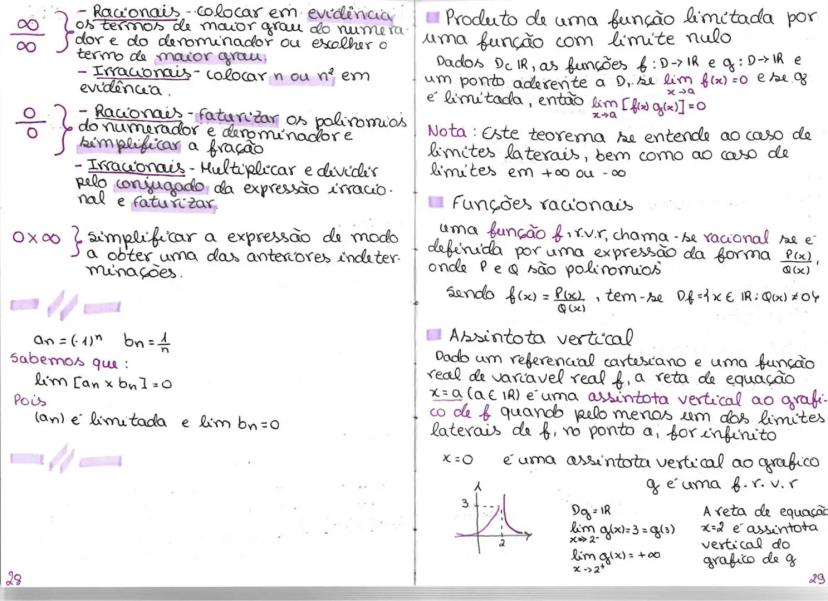 ∞/∞ } - Racionais - colocar em evidência
os termos de maior grau do numera-
dor e do denominador ou escolher o
termo de maior grau.
- Irracionais - colocar n ou n² em
evidência.
0/0 } - Racionais - Faturizar os polinomios
do numerador e denominador e
simplificar a fração
- Irracionais - Multiplicar e dividir
pelo conjugado da expressão irracio-
nal e faturizar
0×∞ } simplificar a expressão de modo
a obter uma das anteriores indeter-
minações.
an = (-1)ⁿ bn = 1/n
Sabemos que:
lim [an × bn] = 0
Pois
(an) é limitada e lim bn = 0
28
Produto de uma função limitada por
uma função com limite nulo
Dados D⊂IR, as funções f: D→IR e g: D→IR e
um ponto aderente a D, se lim x→a f(x)=0 e se g
é limitada, então lim x→a [f(x) g(x)]=0
Nota: Este teorema se entende ao caso de
limites laterais, bem como ao caso de
limites em +∞ ou -∞
Funções racionais
uma função f, r.v.r, chama-se racional se é
definida por uma expressão da forma P(x)/Q(x),
onde P e Q são polinomios
Sendo f(x) = P(x)/Q(x), tem-se Df={x ∈ IR: Q(x)≠0}
Assintota vertical
Dado um referencial cartesiano e uma função
real de variavel real f, a reta de equação
x=a (a∈IR) é uma assintota vertical ao grafi-
co de f quando pelo menos um dos limites
laterais de f, no ponto a, for infinito
x=0 é uma assintota vertical ao grafico
g é uma f.r.v.r
3
2
Dg = IR
lim x→2⁻ g(x)=3=g(3)
lim x→2⁺ g(x)=+∞
A reta de equação
x=2 é assintota
vertical do
grafico de g
29